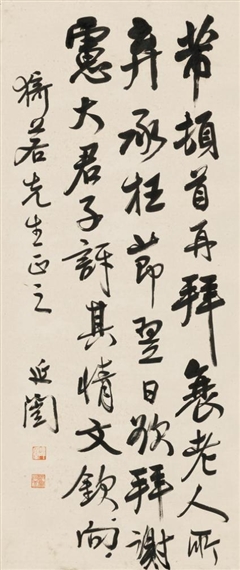 芾頓首再拜衰老人所
弃承枉節翌日欲拜謝
憲大君子訝其情文欽向
猗若先生正之 延闓